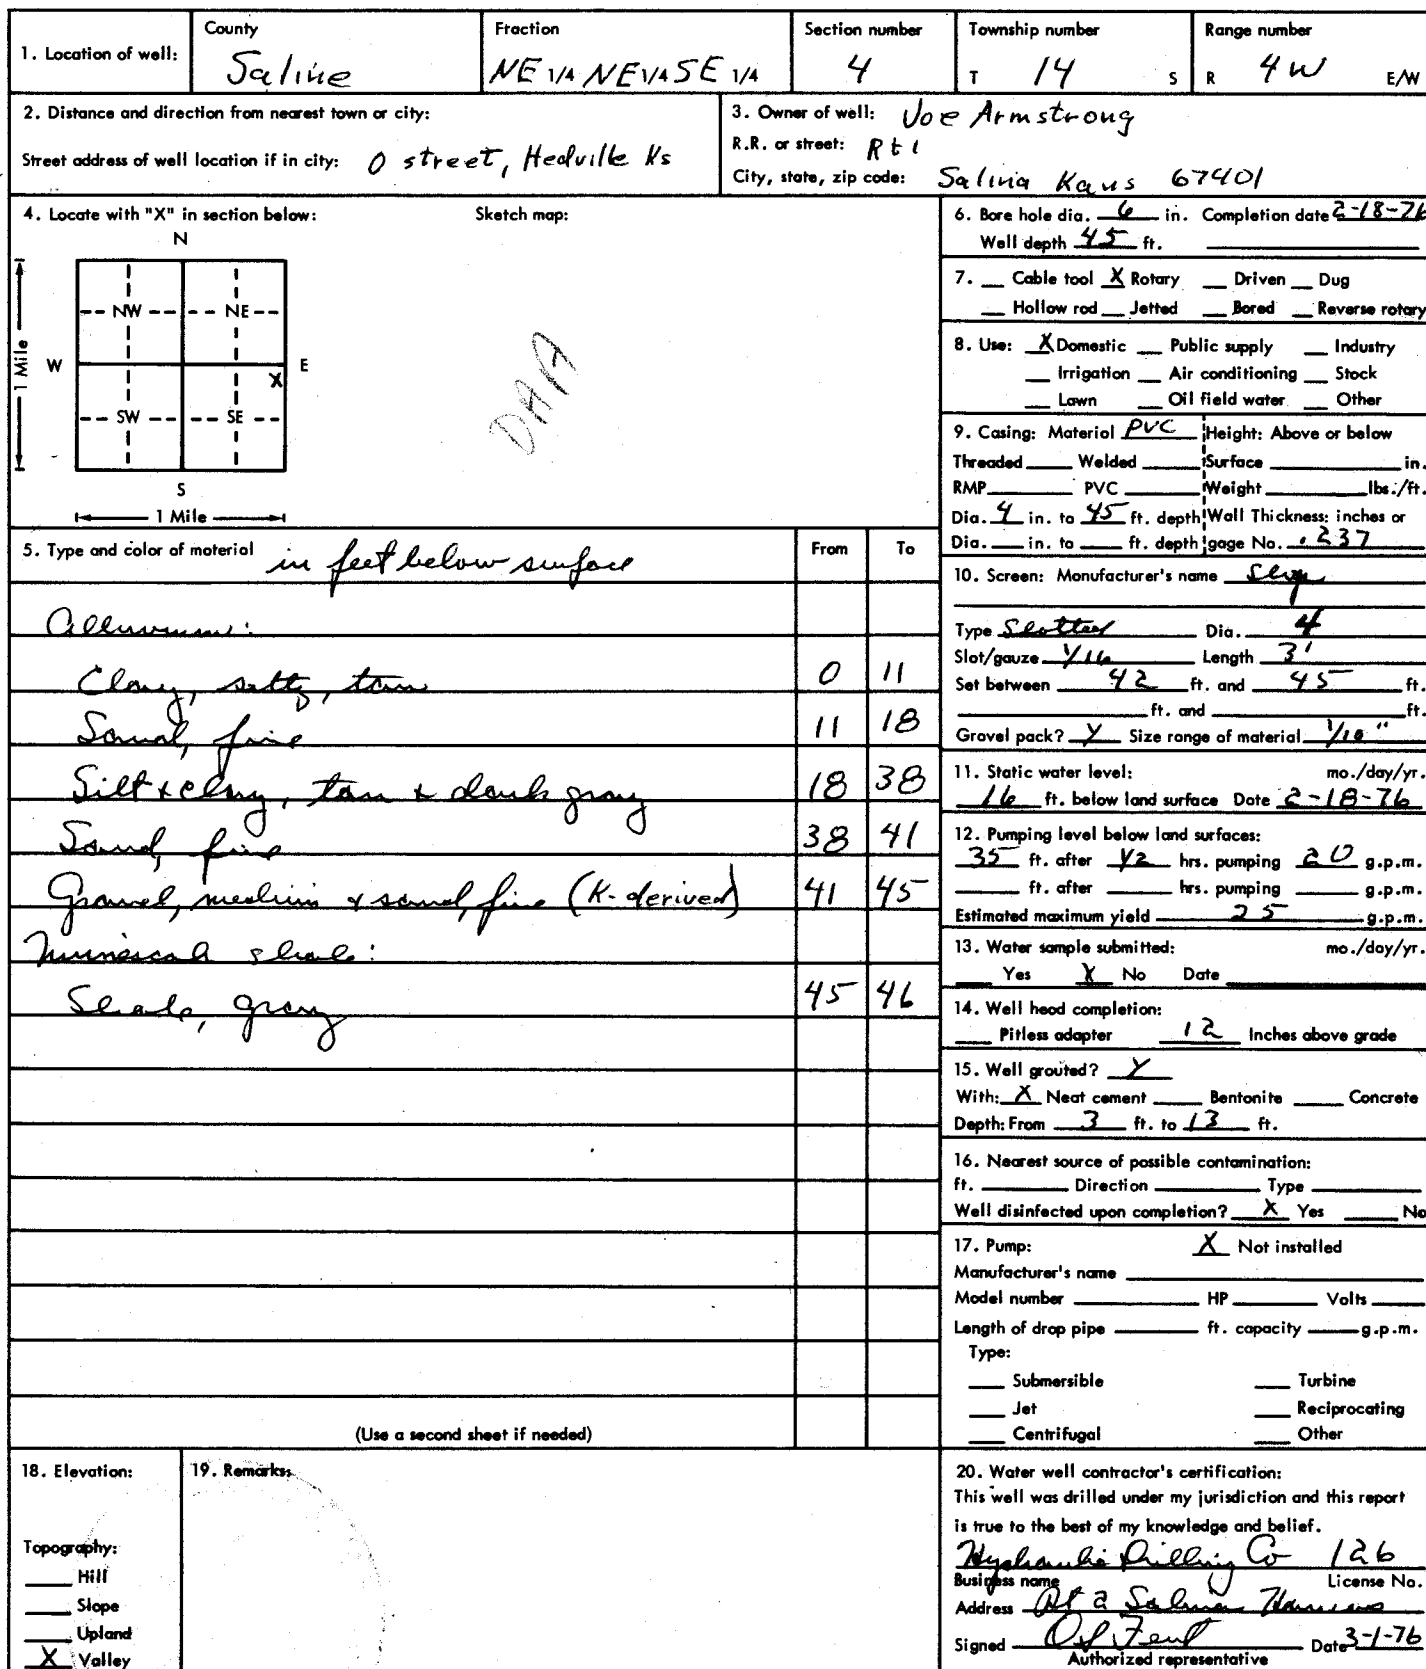 1. Location of well: County Saline Fraction NE 1/4 NE 1/4 SE 1/4 Section number 4 Township number T 14 S Range number R 4W E/W
2. Distance and direction from nearest town or city:
Street address of well location if in city: O street, Hedville Ks
3. Owner of well: Joe Armstrong
R.R. or street: Rt 1
City, state, zip code: Salina Kans 67401
4. Locate with "X" in section below: Sketch map:
N
NW NE
W E
X
SW SE
S
1 Mile
1 Mile
5. Type and color of material in feet below surface From To
Alluvium:
Clay, silty, tan 0 11
Sand, fine 11 18
Silt & clay, tan & dark gray 18 38
Sand, fine 38 41
Gravel, medium & sand, fine (K-derived) 41 45
Ninnescah shale:
Shale, gray 45 46
(Use a second sheet if needed)
6. Bore hole dia. 6 in. Completion date 2-18-76
Well depth 45 ft.
7. Cable tool X Rotary Driven Dug
Hollow rod Jetted Bored Reverse rotary
8. Use: X Domestic Public supply Industry
Irrigation Air conditioning Stock
Lawn Oil field water Other
9. Casing: Material PVC Height: Above or below
Threaded Welded Surface in.
RMP PVC Weight lbs./ft.
Dia. 4 in. to 45 ft. depth Wall Thickness: inches or
Dia. in. to ft. depth gage No. .237
10. Screen: Manufacturer's name
Type Slotted Dia. 4
Slot/gauze 1/16 Length 3'
Set between 42 ft. and 45 ft.
ft. and ft.
Gravel pack? Y Size range of material 1/16"
11. Static water level: mo./day/yr.
16 ft. below land surface Date 2-18-76
12. Pumping level below land surfaces:
35 ft. after 1/2 hrs. pumping 20 g.p.m.
ft. after hrs. pumping g.p.m.
Estimated maximum yield 25 g.p.m.
13. Water sample submitted: mo./day/yr.
Yes X No Date
14. Well head completion:
Pitless adapter 12 Inches above grade
15. Well grouted? Y
With: X Neat cement Bentonite Concrete
Depth: From 3 ft. to 13 ft.
16. Nearest source of possible contamination:
ft. Direction Type
Well disinfected upon completion? X Yes No
17. Pump: X Not installed
Manufacturer's name
Model number HP Volts
Length of drop pipe ft. capacity g.p.m.
Type:
Submersible Turbine
Jet Reciprocating
Centrifugal Other
18. Elevation:
Topography:
Hill
Slope
Upland
X Valley
19. Remarks:
20. Water well contractor's certification:
This well was drilled under my jurisdiction and this report
is true to the best of my knowledge and belief.
Hydraulic Drilling Co 126
Business name License No.
Address Rt 2 Salina Kansas
Signed O S Fent Date 3-1-76
Authorized representative